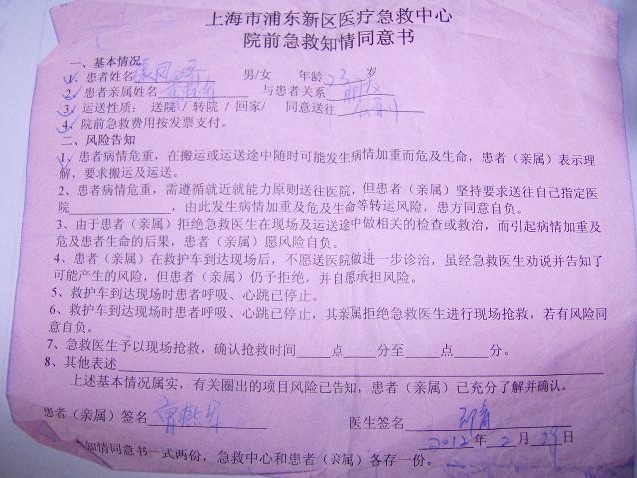 上海市浦东新区医疗急救中心
院前急救知情同意书
一、基本情况
1、患者姓名 男/女 年龄 23 岁
2、患者亲属姓名 与患者关系 朋友
3、运送性质：送院 / 转院 / 回家/ 同意送往
4、院前急救费用按发票支付。
二、风险告知
1、患者病情危重，在搬运或运送途中随时可能发生病情加重而危及生命，患者（亲属）表示理
解，要求搬运及运送。
2、患者病情危重，需遵循就近就能力原则送往医院，但患者（亲属）坚持要求送往自己指定医
院____________，由此发生病情加重及危及生命等转运风险，患方同意自负。
3、由于患者（亲属）拒绝急救医生在现场及运送途中做相关的检查或救治，而引起病情加重及
危及患者生命的后果，患者（亲属）愿风险自负。
4、患者（亲属）在救护车到达现场后，不愿送医院做进一步诊治，虽经急救医生劝说并告知了
可能产生的风险，但患者（亲属）仍予拒绝，并自愿承担风险。
5、救护车到达现场时患者呼吸、心跳已停止。
6、救护车到达现场时患者呼吸、心跳已停止，其亲属拒绝急救医生进行现场抢救，若有风险同
意自负。
7、急救医生予以现场抢救，确认抢救时间____点____分至____点____分。
8、其他表述
上述基本情况属实，有关圈出的项目风险已告知，患者（亲属）已充分了解并确认。
患者（亲属）签名 医生签名
2012 年 2 月 29 日
知情同意书一式两份，急救中心和患者（亲属）各存一份。